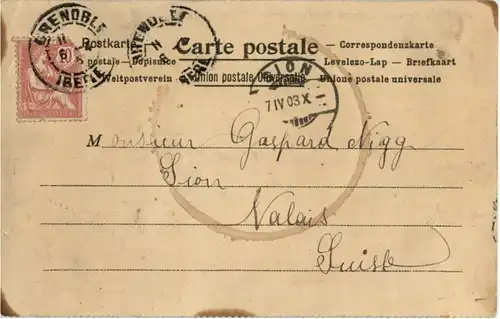 GRENOBLE
ISERE
GRENOBLE
Postkarte Carte postale – Correspondenzkarte
postale – Dopisnice Levelezo-Lap – Briefkaart
Weltpostverein – Union postale Universelle – Unione postale universale
SION
7 IV 03 X
Monsieur Gaspard Nigg
Sion
Valais
Suisse